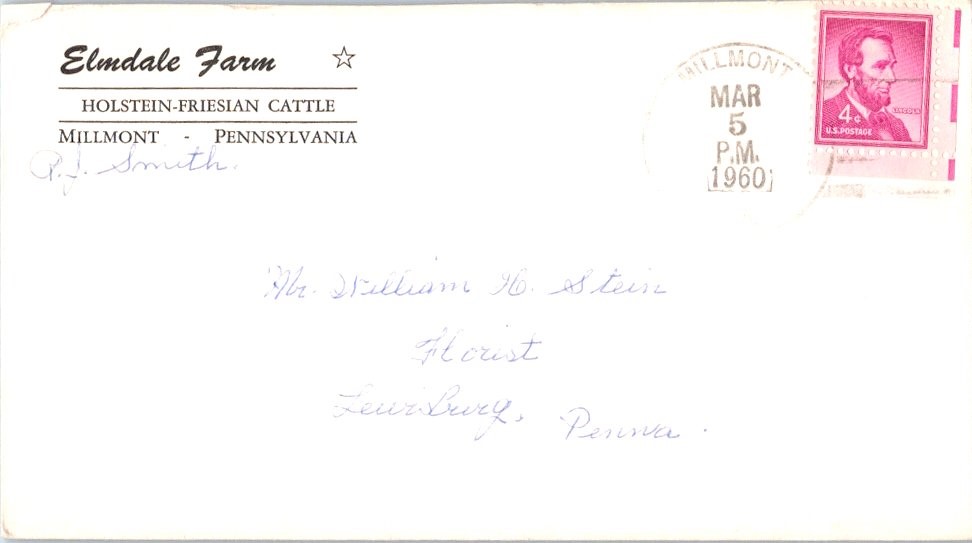 Elmdale Farm ☆
HOLSTEIN-FRIESIAN CATTLE
MILLMONT - PENNSYLVANIA
P.J. Smith.
MILLMONT
MAR
5
P.M.
1960
LINCOLN
4¢
U.S. POSTAGE
Mr. William H. Stein
Florist
Lewisburg, Penna.